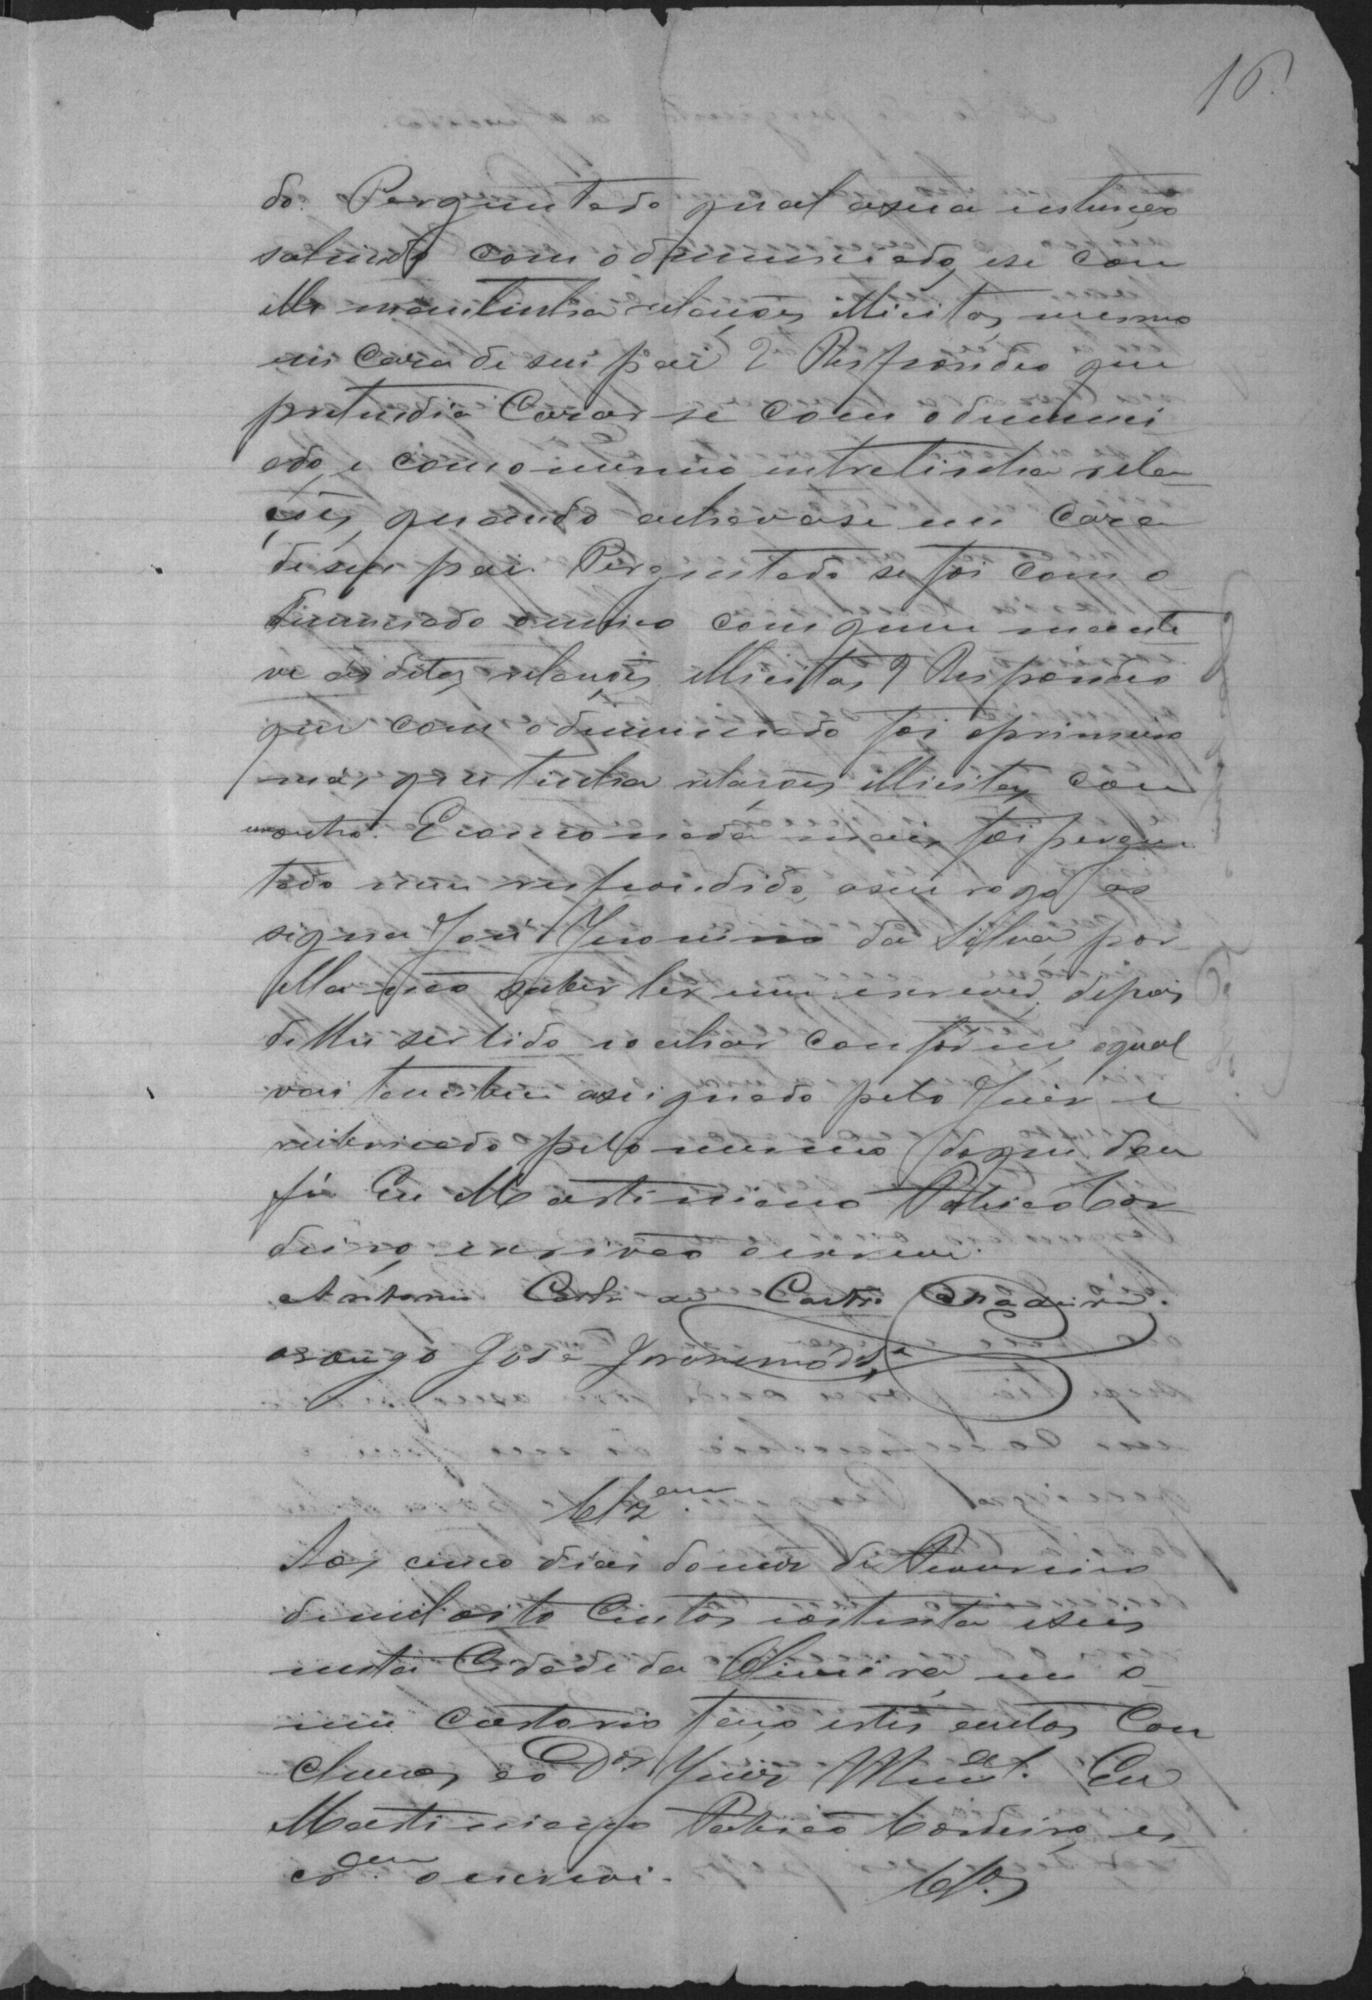 16.
do. Perguntado qual a sua intenção
sahindo com o denunciado, e se com
elle mantinha relações illicitas, mesmo
em casa de seu pai? Respondeo que
pretendia Casar-se com o denunci
ado, e com o mesmo entretinha rela-
ções, quando achava-se em Casa
de seu pai. Perguntado se foi com o
denunciado o unico com quem mante
ve as ditas relações illicitas? Respondeo
que com o denunciado foi o primeiro
mas que tinha relações illicitas com
outro. E como nada mais foi pergun
tado nem respondido, a seu rogo as
signa José Jeronimo da Silva, por
ella não saber ler nem escrever, depois
de lhe ser lido e o achar conforme, o qual
vai tambem assignado pelo Juiz e
rubricado pelo mesmo do que dou
fé. Eu Martiniano Patricio Cor
deiro, escrivão o escrevi.
Antonio de Castro
a rougo José Jeronimo da Sa
Clsam.
Aos cinco dias do mez de Fevereiro
de mil oito Centos e oitenta e seis
nesta Cidade da Oliveira, em o
meu cartorio faço estes autos Con
clusos ao Dor Juiz Munal. Eu
Martiniano Patricio Cordeiro, es
crm o escrevi.
Clsos